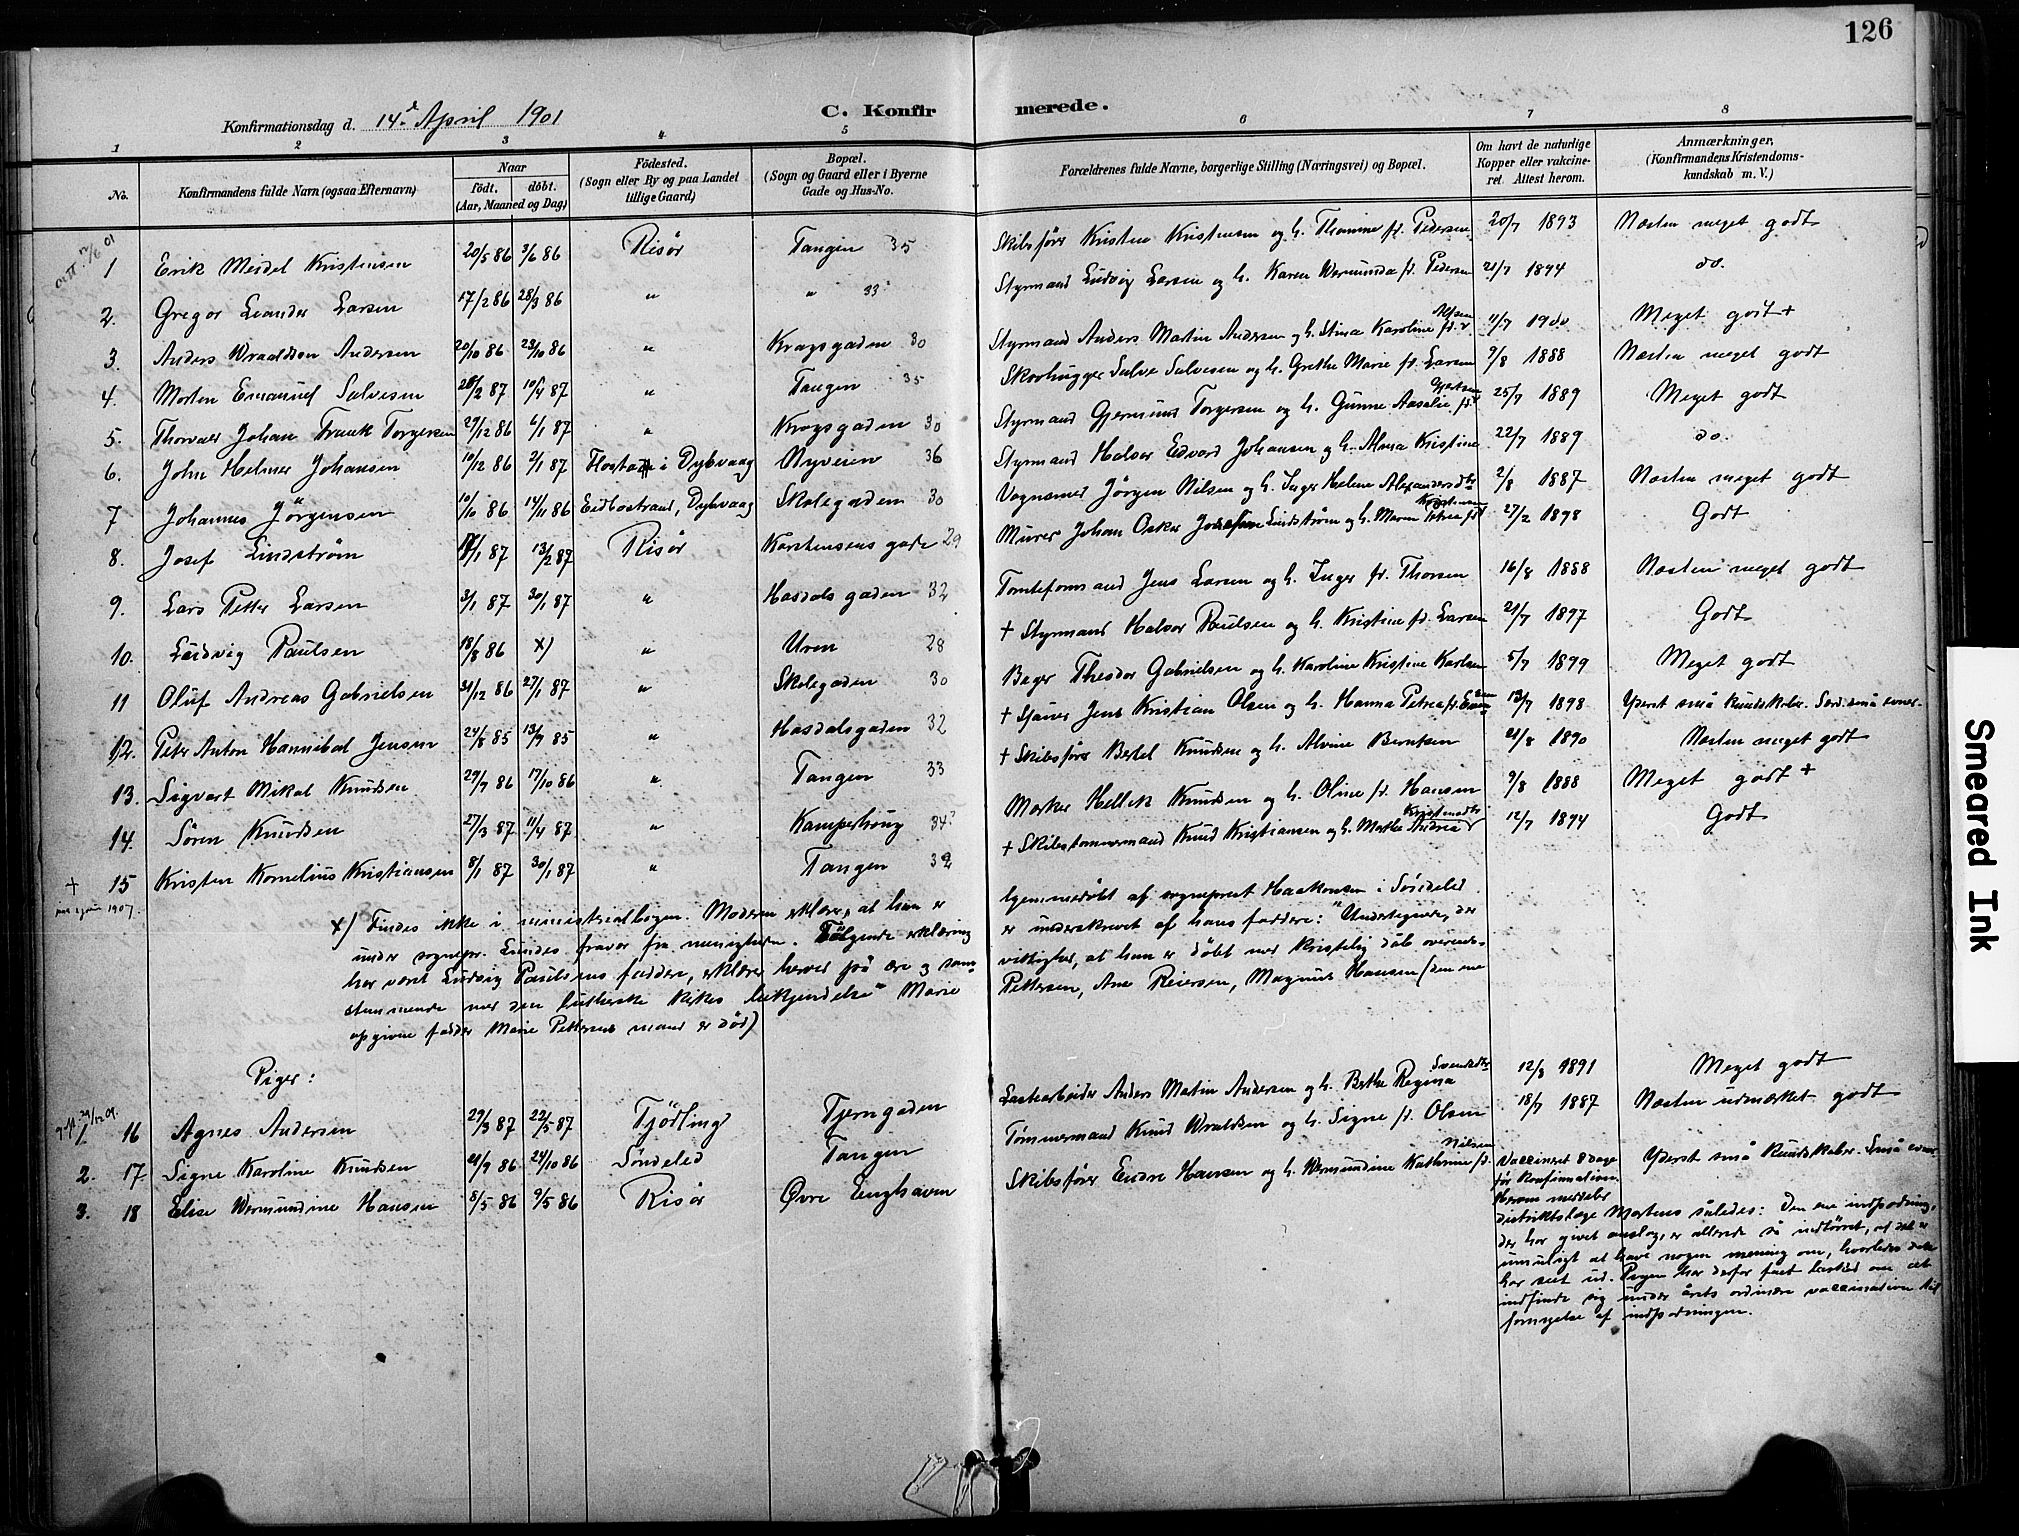 126
Konfirmationsdag d. 14de April 1901
C. Konfirmerede.
1 2 3 4 5 6 7 8
No.
Konfirmandens fulde Navn (ogsaa Efternavn)
Naar
født. døbt.
(Aar, Maaned og Dag)
Födested.
(Sogn eller By og paa Landet tillige Gaard)
Bopæl.
(Sogn og Gaard eller i Byerne Gade og Hus-No.
Forældrenes fulde Navne, borgerlige Stilling (Næringsvei) og Bopæl.
Om havt de naturlige Kopper eller vakcineret. Attest herom.
Anmærkninger,
(Konfirmandens Kristendomskundskab m. V.)
1 Erik Meidel Kristensen 20/5 86 3/6 86 Risör Tangen 35 Skibsförer Kristen Kristensen og h. Thomine f. Pedersen 20/7 1893 Næsten meget godt
2. Gregor Leander Larsen 17/2 86 28/3 86 " " 33 Styrmand Ludvig Larsen og h. Karen Wermunda f. Pedersen 21/7 1894 do.
3. Anders Wraaldsen Andersen 20/10 86 23/10 86 " Kragsgaden 30 Styrmand Anders Martin Andersen og h. Stina Karoline f. Olsen 11/7 1900 Meget godt +
4. Morten Emanuel Salvesen 28/2 87 10/4 87 " Tangen 35 Skovhugger Salve Salvesen og h. Grethe Marie f. Larsen 9/8 1888 Næsten meget godt
5. Thorvald Johan Frank Torgersen 29/12 86 6/1 87 " Kragsgaden 30 Styrmand Gjermund Torgersen og h. Gunne Aasalie f. 25/7 1889 Meget godt
6. John Helmer Johansen 10/12 86 2/1 87 Flosta i Dybvaag Nyveien 36 Styrmand Halvor Edvard Johansen og h. Alma Kristine 22/7 1889 do.
7 Johannes Jörgensen 10/10 86 14/11 86 Eidbostrand, Dybvaag Skolegaden 30 Vognsmed Jörgen Nilsen og h. Inger Helene Alexandersdtr 2/8 1887 Næsten meget godt
8. Josef Lindström 17/1 87 13/2 87 Risör Karstensens gade 29 Murer Johan Oskar Josefsen Lindström og h. Maren Petrea f. Kristensen 27/2 1898 Godt
9. Lars Petter Larsen 3/1 87 30/1 87 " Hasdalsgaden 32 Tomteformand Jens Larsen og h. Inger f. Thorsen 16/8 1888 Næsten meget godt
10. Ludvig Paulsen 18/8 86 x) " Uren 28 + Styrmand Halvor Paulsen og h. Kristine f. Larsen 21/7 1897 Godt
11 Oluf Andreas Gabrielsen 31/12 86 27/1 87 " Skolegaden 30 Bager Theodor Gabrielsen og h. Karoline Kristine Karlsen 5/7 1899 Meget godt
12. Peter Anton Hannibal Jensen 24/8 85 13/9 85 " Hasdalsgaden 32 + Sjauer Jens Kristian Olsen og h. Hanna Petrea f. 13/7 1898 Yderst små kundskaber. Særd. små evner.
13. Sigvart Mikal Knudsen 29/7 86 17/10 86 " Tangen 33 + Skibsförer Bertel Knudsen og h. Alvine Berntsen 21/8 1890 Næsten meget godt
14. Sören Knudsen 27/3 87 11/4 87 " Kamperhoug 34 Mærker Hellik Knudsen og h. Oline f. Hansen 9/8 1888 Meget godt +
+ 15 Kristen Kornelius Kristiansen 8/1 87 30/1 87 " Tangen 32 + Skibstømmermand Knud Kristiansen og h. Marthe Andrea Kristensdtr 12/7 1894 Godt
1907.
x) Findes ikke i ministerialbogen. Moderen erklærer, at han er hjemmedöbt af sogneprest Haakonsen i Söndeled
under sognepr. Lundes fravær fra menigheden. Fölgende erklæring er underskrevet af hans faddere: "Undertegnede, der
har været Ludvig Paulsens faddere, erklærer herved på ære og samvittighed, at han er döbt med kristelig dåb overensstemmende
med den lutherske kirkes bekjendelse" Marie Pettersen, Ane Reiersen, Magnus Hansen (den ene
opgivne fadder Marie Pettersens mand er död)
Piger:
1. 16 Agnes Andersen 29/3 87 22/5 87 Tjödling Tjerngaden Lastearbeider Anders Martin Andersen og h. Berthe Regina Svendsdtr 12/8 1891 Meget godt
2. 17 Signe Karoline Knudsen 21/9 86 24/10 86 Söndeled Tangen Tömmermand Knud Wraldsen og h. Signe f. Olsen 18/7 1887 Næsten udmærket godt
3. 18 Elise Wermundine Hansen 8/5 86 9/5 86 Risör Øvre Enghaven Skibsförer Endre Hansen og h. Wermundine Kathrine f. Nilsen Vaccineret 8 dage Yderst små kundskaber. Små evner.
för konfirmationen.
Herom meddeler
distriktslæge Mortens således: Den ene indpodning,
der har givet anslag, er allerede så indtörret, at det er
umuligt at have nogen mening om, hvorledes den
har seet ud. Pigen har derfor faaet besked om at
indfinde sig under årets ordinære vaccination til
fornyelse af indpodningen.
Smeared Ink